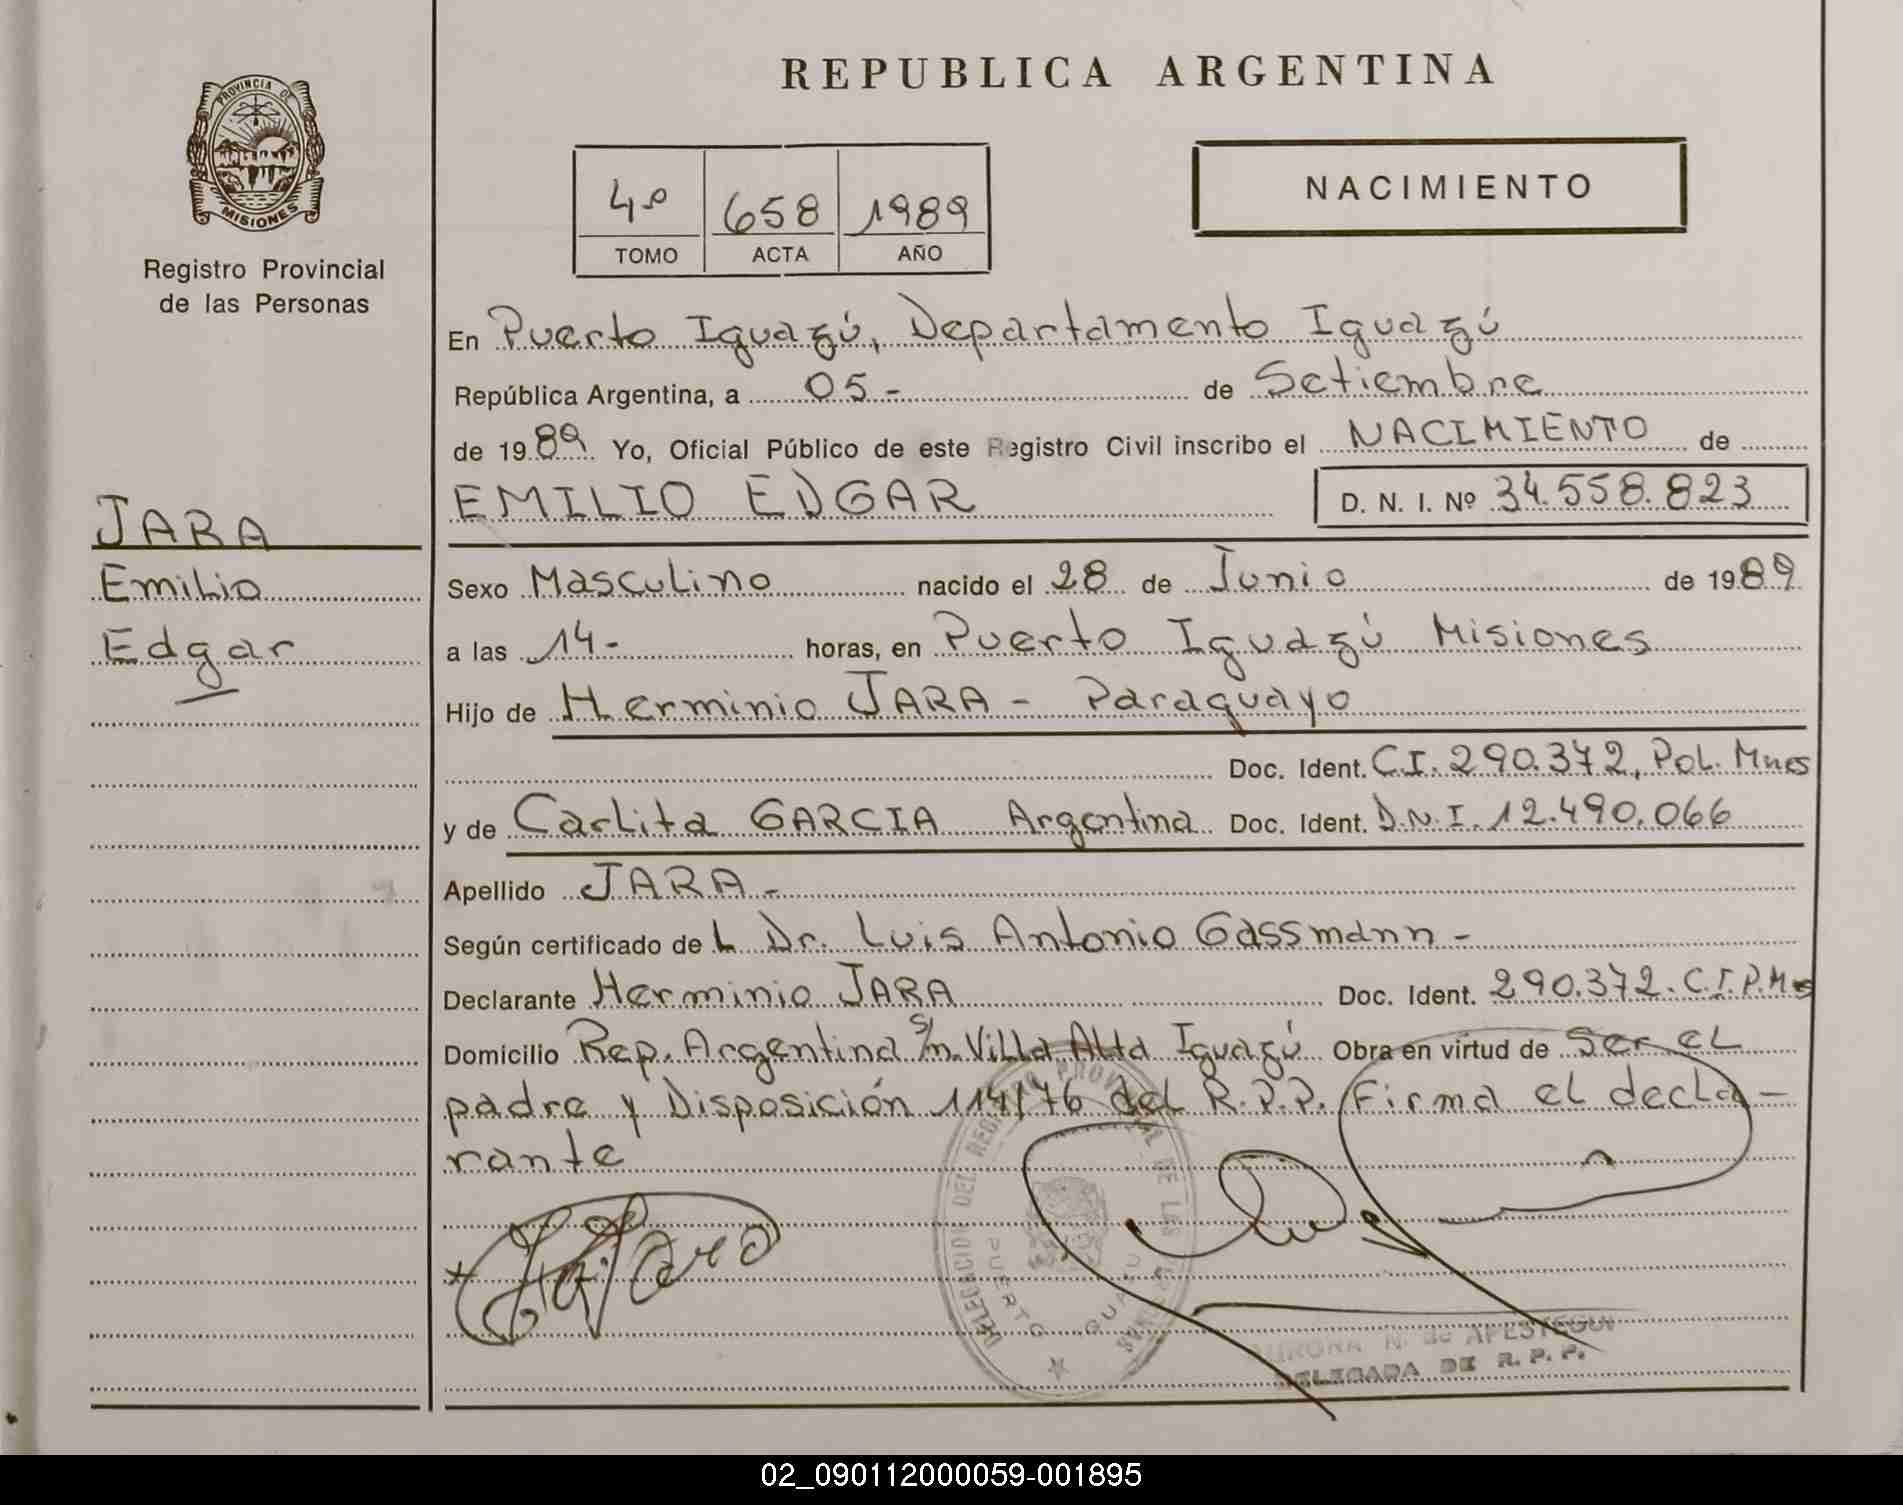 REPUBLICA ARGENTINA
PROVINCIA DE
MISIONES
Registro Provincial
de las Personas
4º 658 1989
TOMO ACTA AÑO
NACIMIENTO
En Puerto Iguazú, Departamento Iguazú
República Argentina, a 05- de Setiembre
de 1989 Yo, Oficial Público de este Registro Civil inscribo el NACIMIENTO de
EMILIO EDGAR D. N. I. Nº 34.558.823
JARA
Emilio
Edgar
Sexo Masculino nacido el 28 de Junio de 1989
a las 14- horas, en Puerto Iguazú Misiones
Hijo de Herminio JARA - Paraguayo
Doc. Ident. C.I. 290.372, Pol. Mnes
y de Carlita GARCIA Argentina Doc. Ident. D.N.I. 12.490.066
Apellido JARA -
Según certificado de L Dr. Luis Antonio Gassmann -
Declarante Herminio JARA Doc. Ident. 290.372. C.I.P.Ms
Domicilio Rep. Argentina s/n. Villa Alta Iguazú Obra en virtud de Ser el
padre y Disposición 114/76 del R.P.P. Firma el decla-
rante
DELEGACION DEL REGISTRO PROVINCIAL DE LAS PERSONAS
PUERTO IGUAZU
N. de APESTEGUI
DELEGADA DE R. P. P.
02_090112000059-001895